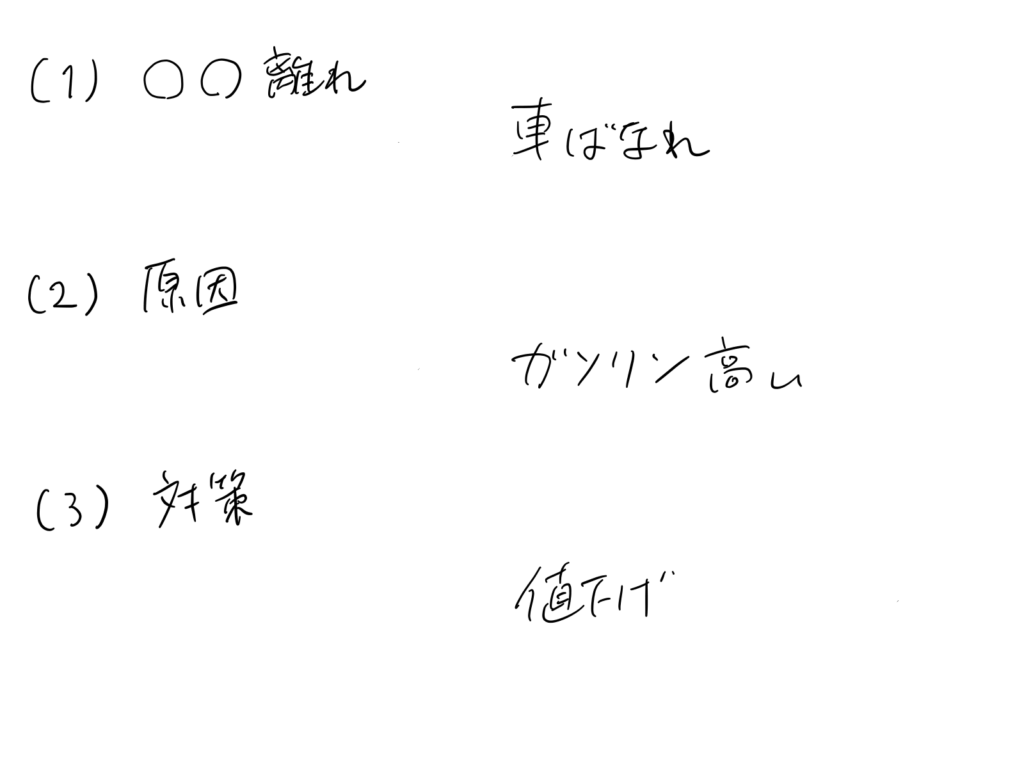 (1) ○○離れ
車ばなれ
(2) 原因
ガソリン高い
(3) 対策
値下げ